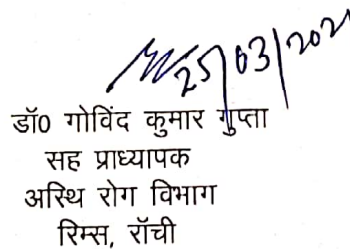 25/03/202
डॉ0 गोविंद कुमार गुप्ता
सह प्राध्यापक
अस्थि रोग विभाग
रिम्स, रॉची